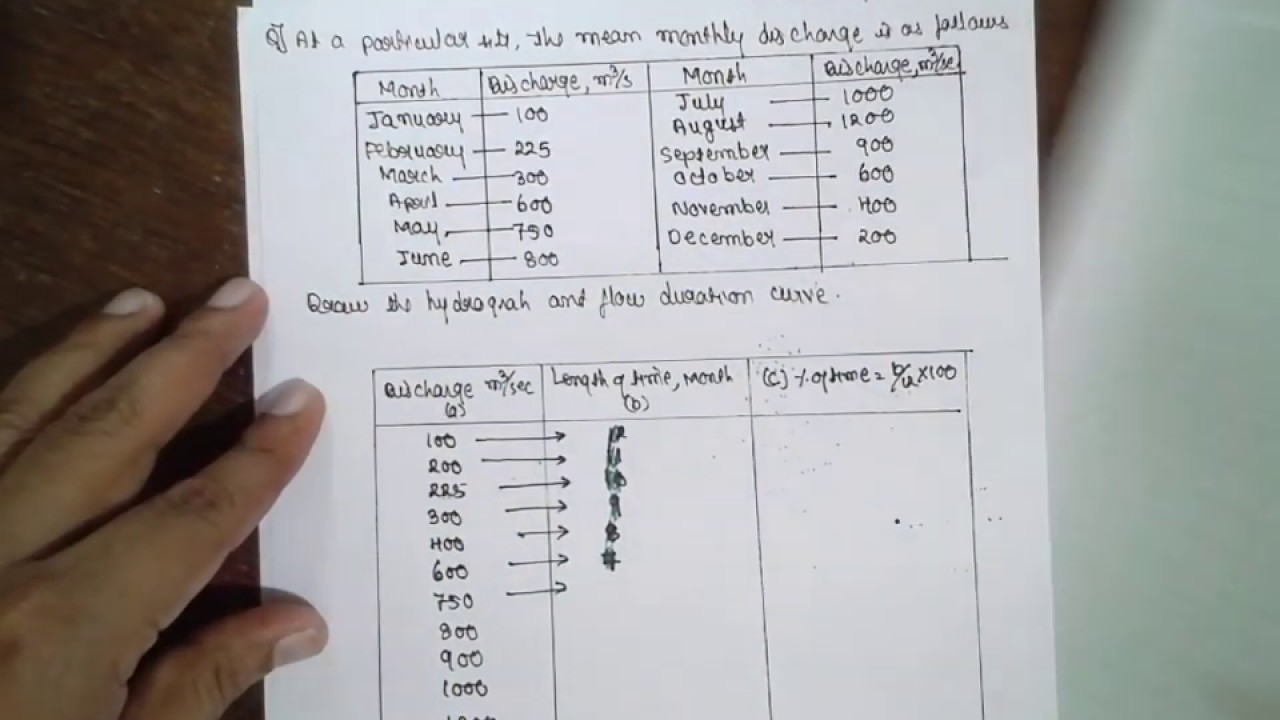 Q] At a particular site, the mean monthly discharge is as follows
Month Discharge, m³/s Month Discharge, m³/sec
January 100 July 1000
February 225 August 1200
March 300 September 900
April 600 October 600
May 750 November 400
June 800 December 200
Draw the hydrograh and flow duration curve.
Discharge m³/sec Length of time, Month (C) % of time = b/a ×100
(a) (b)
100 12
200 11
225 10
300 9
400 8
600
750
800
900
1000
1200